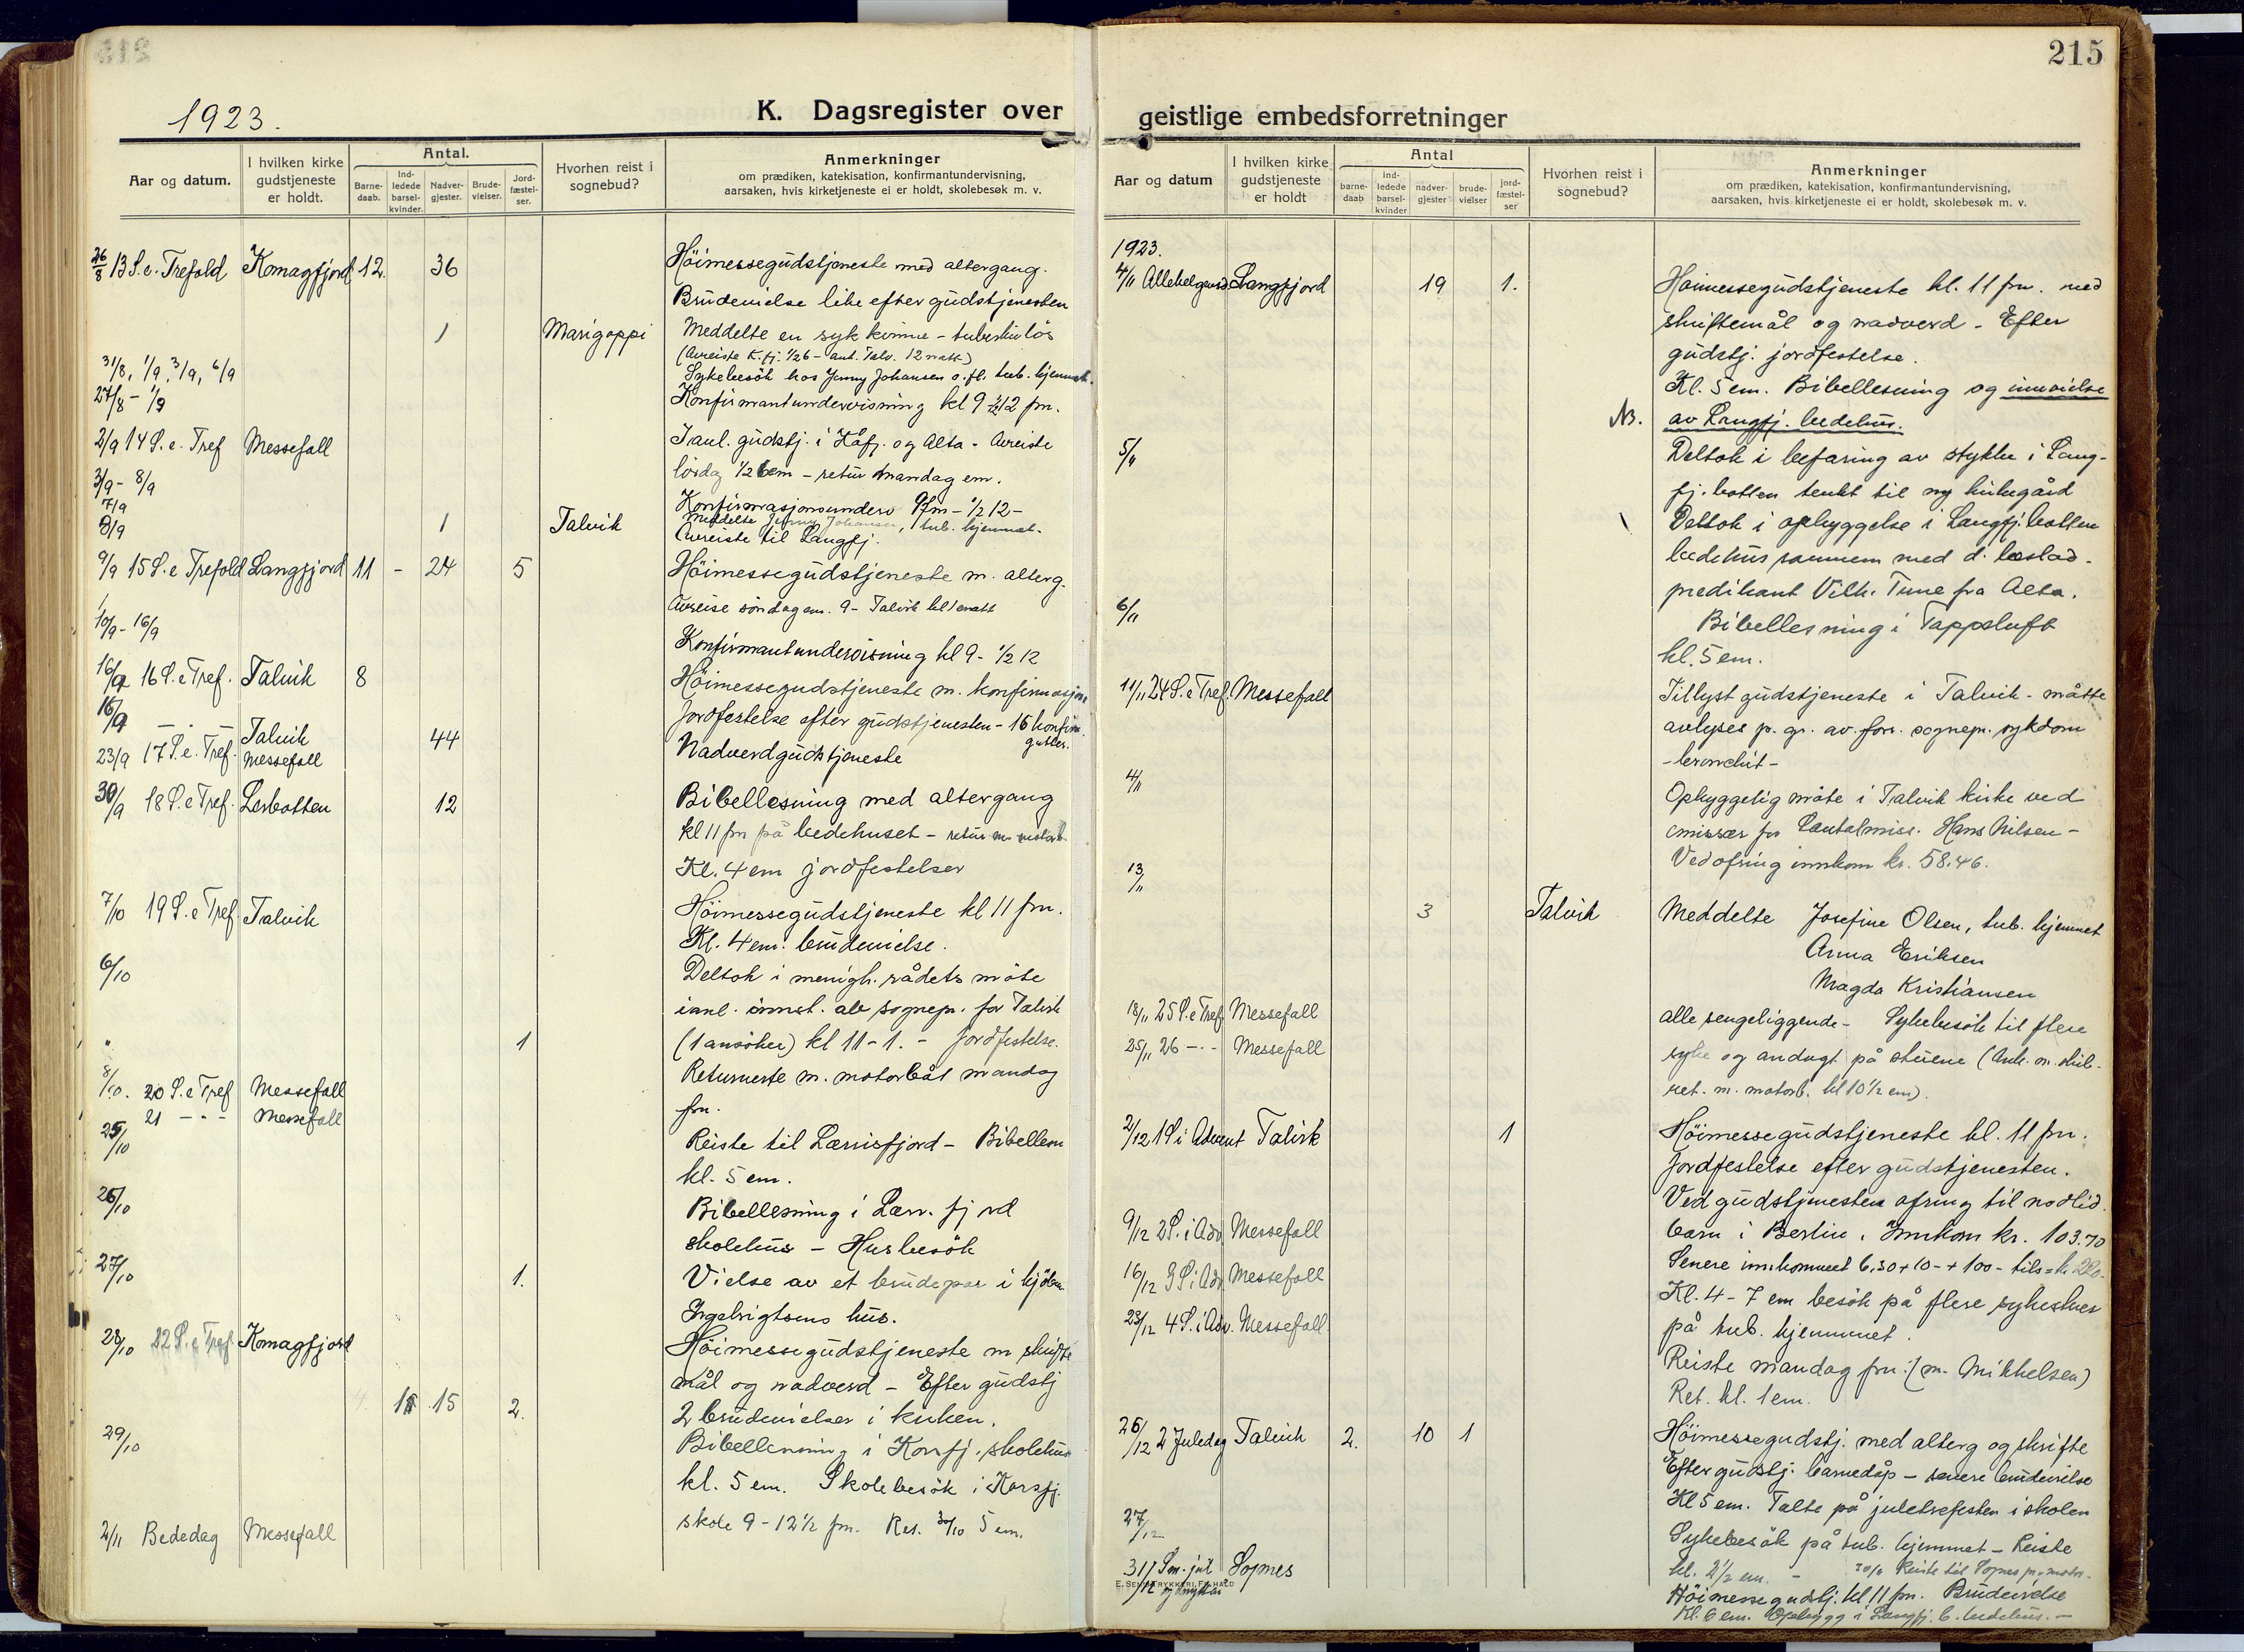 1923.
K. Dagsregister over
Aar og datum.
I hvilken kirke gudstjeneste er holdt.
Antal.
Barne-daab.
Ind-ledede barsel-kvinder.
Nadver-gjester.
Brude-vielser.
Jord-fæstel-ser.
Hvorhen reist i sognebud?
Anmerkninger
om prædiken, katekisation, konfirmantundervisning,
aarsaken, hvis kirketjeneste ei er holdt, skolebesøk m. v.
26/8 13 S. e. Trefold Komagfjord 12. 36 Höimessegudstjeneste med altergang.
Brudevielse like efter gudstjenesten
1 Marigoppi Meddelte en syk kvinne - tuberkulös
31/8, 1/9, 3/9, 6/9 Sykebesök hos Jenny Johansen o. fl. tub. hjemmet.
27/8 - 1/9 Konfirmantundervisning kl 9-12 fm.
2/9 14 S. e. Tref Messefall I anl. gudstj. i Kåfj. og Alta - Avreiste
lördag 1/2 6 em - retur mandag em.
3/9 - 8/9 Konfirmasjonsunderv 9 fm - 1/2 12 -
7/9 1 Talvik Meddelte Jenny Johansen, tub. hjemmet.
8/9 Avreiste til Langfj.
9/9 15 S. e Trefold Langfjord 11 - 24 5 Höimessegudstjeneste m. alterg.
Avreise söndag em. 9 - Talvik kl 1 natt
10/9 - 16/9 Konfirmantundervisning kl 9 - 1/2 12
16/9 16 S. e Tref. Talvik 8 Höimessegudstjeneste m. konfirmasjon
Jordfestelse efter gudstjenesten - 16 konfirm.
gutter.
16/9 - . - Talvik 44 Nadverdgudstjeneste
23/9 17 S. e. Tref. Messefall
30/9 18 S. e Tref. Lerbotten 12 Bibellesning med altergang
kl 11 fm på bedehuset - retur m. motorb.
Kl. 4 em jordfestelser
7/10 19 S. e Tref. Talvik Höimessegudstjeneste kl 11 fm.
Kl. 4 em. brudevielse.
6/10 Deltok i menigh. rådets möte
i anl. innst. av sognepr. for Talvik
" 1 (1 ansöker) kl 11 - 1. - Jordfestelse.
8/10. Returnerte m. motorbåt mandag
20 S. e Tref Messefall
fm.
21 - " - Messefall
25/10 Reiste til Lærrisfjord - Bibellesn
kl. 5 em.
26/10 Bibellesning i Lærr. fjord
skolehus - Husbesök
27/10 1. Vielse av et brudepar i kjöbm.
Ingebrigtsens hus.
28/10 22 S. e Tref. Komagfjord Höimessegudstjeneste m skrifte
15 2. mål og nadverd - Efter gudstj
2 brudevielser i kirken.
29/10 Bibellesning i Korsfj. skolehus
kl. 5 em. Skolebesök i Korsfj.
skole 9 - 12 1/2 fm. Ret. 30/10 5 em.
2/11 Bededag Messefall
215
geistlige embedsforretninger
Aar og datum
I hvilken kirke gudstjeneste er holdt
Antal
barne-daab
ind-ledede barsel-kvinder
nadver-gjester
brude-vielser
jord-fæstel-ser
Hvorhen reist i sognebud?
Anmerkninger
om prædiken, katekisation, konfirmantundervisning,
aarsaken, hvis kirketjeneste ei er holdt, skolebesøk m. v.
1923.
4/11 Allehelgensd. Langfjord 19 1. Höimessegudstjeneste kl. 11 fm. med
skriftemål og nadverd - Efter
gudstj. jordfestelse.
Kl. 5 em. Bibellesning og innvielse
NB. av Langfj. bedehus.
5/11 Deltok i befaring av stykke i Lang-
fj. botten tenkt til ny kirkegård
Deltok i opbyggelse i Langfj. botten
bedehus sammen med d. læstad.
predikant Vilh. Tune fra Alta.
6/11 Bibellesning i Tappeluft
kl. 5 em.
11/11 24 S. e Tref. Messefall Tillyst gudstjeneste i Talvik - måtte
avlyses p. gr. av forr. sognepr. sykdom
- bronchit -
4/11 Opbyggelig möte i Talvik kirke ved
emissær for Santalmiss. Hans Nilsen -
Ved ofring innkom kr. 58.46.
13/11
3 Talvik Meddelte Josefine Olsen, tub. hjemmet
Anna Eriksen
Magda Kristiansen
18/11 25 S. e Tref. Messefall alle sengeliggende - Sykebesök til flere
25/11 26 - . - Messefall syke og andagt på stuene
ret. m. motorb. kl 10 1/2 em).
2/12 1 S i Advent Talvik 1 Höimessegudstjeneste kl. 11 fm.
Jordfestelse efter gudstjenesten.
Ved gudstjenesten ofring til nodlid.
9/12 2 S. i Adv Messefall barn i Berlin. Innkom kr. 103.70
16/12 3 S. i Adv Messefall Senere innkommet 6.30 + 10 - + 100 -
23/12 4 S. i Adv. Messefall Kl. 4 - 7 em besök på flere sykestuer
på tub. hjemmet.
Reiste mandag fm. (m. Mikkelsen)
Ret. kl. 1 em.
26/12 2 Juledag Talvik 2. 10 1 Höimessegudstj. med alterg og skrifte
Efter gudstj. barnedåp - senere brudevielse
Kl 5 em. Talte på juletrefesten i skolen
27/12 Sykebesök på tub. hjemmet - Reiste
kl. 2 1/2 em. - Reiste til Sopnes
31/12 Sopnes Höimessegudstj. kl 11 fm. Brudevielse
Kl. 6 em. Opbygg i Langfj. b. bedehus. -